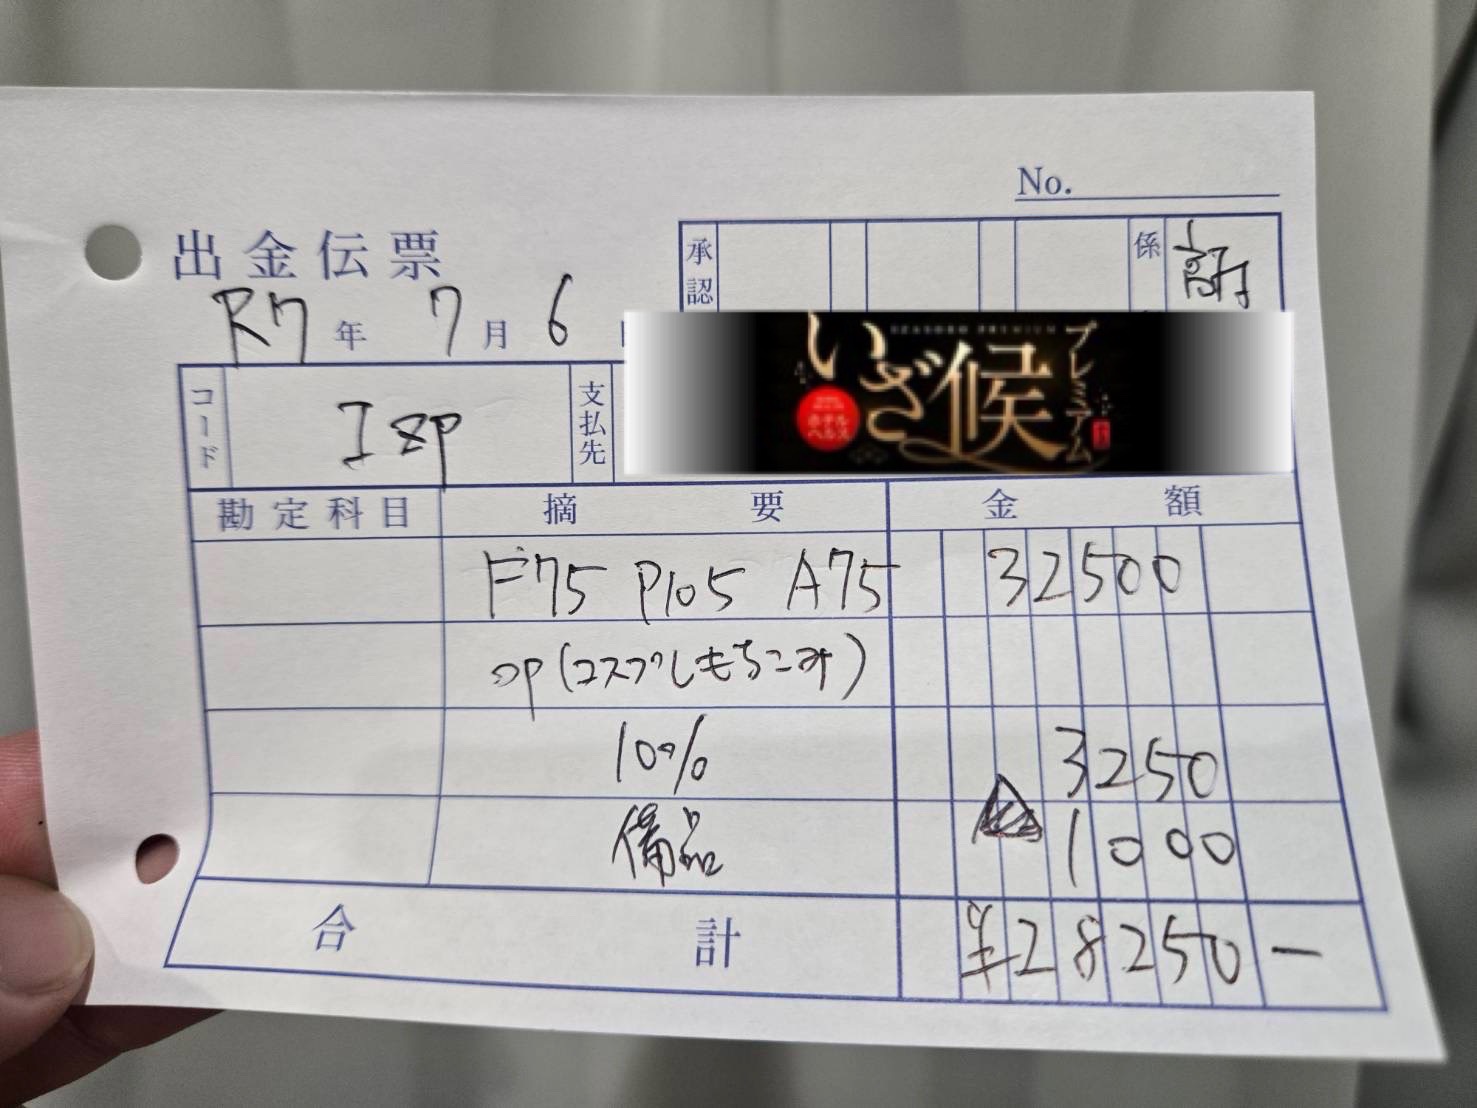 No.
出金伝票
承認
係
R7年 7月 6
コード
Izp
支払先
いざ候
プレミアム
SEASORO PREMIUM
ホテルヘルス
勘定科目 摘要 金額
F75 P105 A75 32500
op(コスプレもちこみ)
10% 3250
備品 △1000
合計 ¥28250−